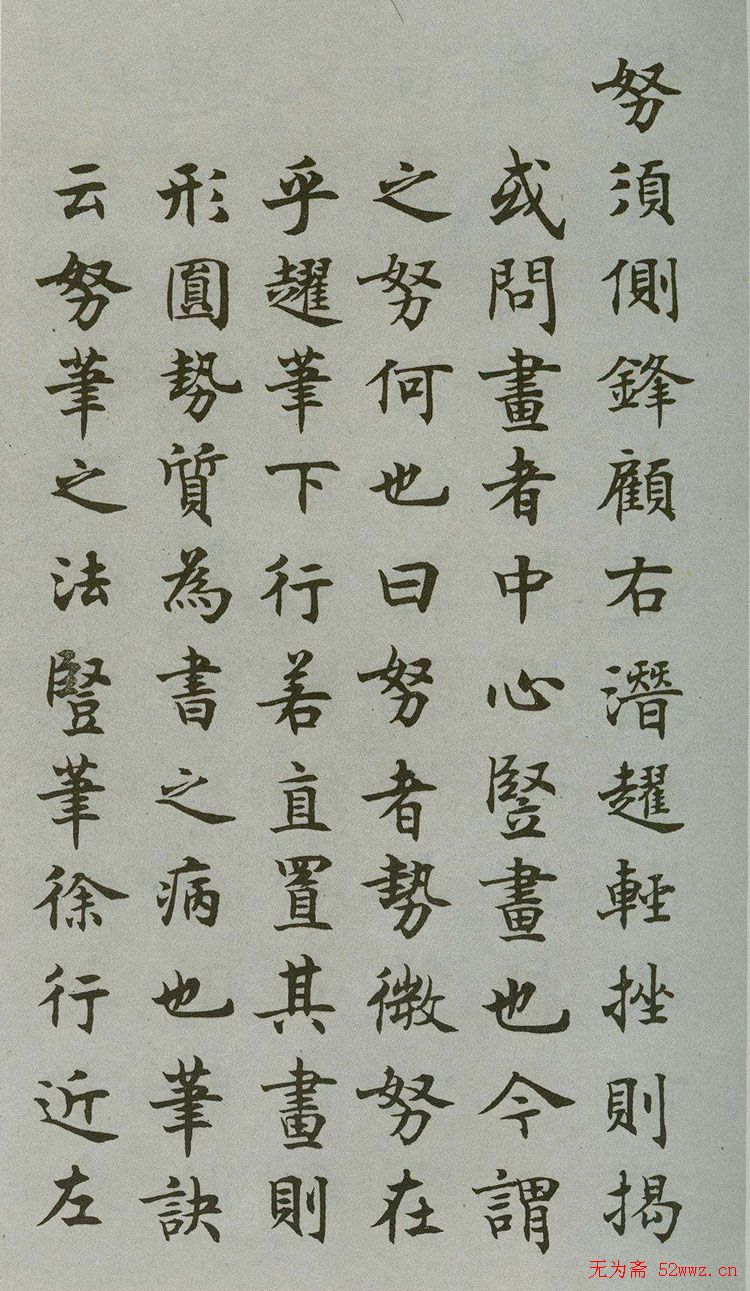 努須側鋒顧右潛趯輕挫則揭
或問畫者中心豎畫也今謂
之努何也曰努者勢微努在
乎趯筆下行若直置其畫則
形圓勢質為書之病也筆訣
云努筆之法豎筆徐行近左
无为斋 52wwz.cn